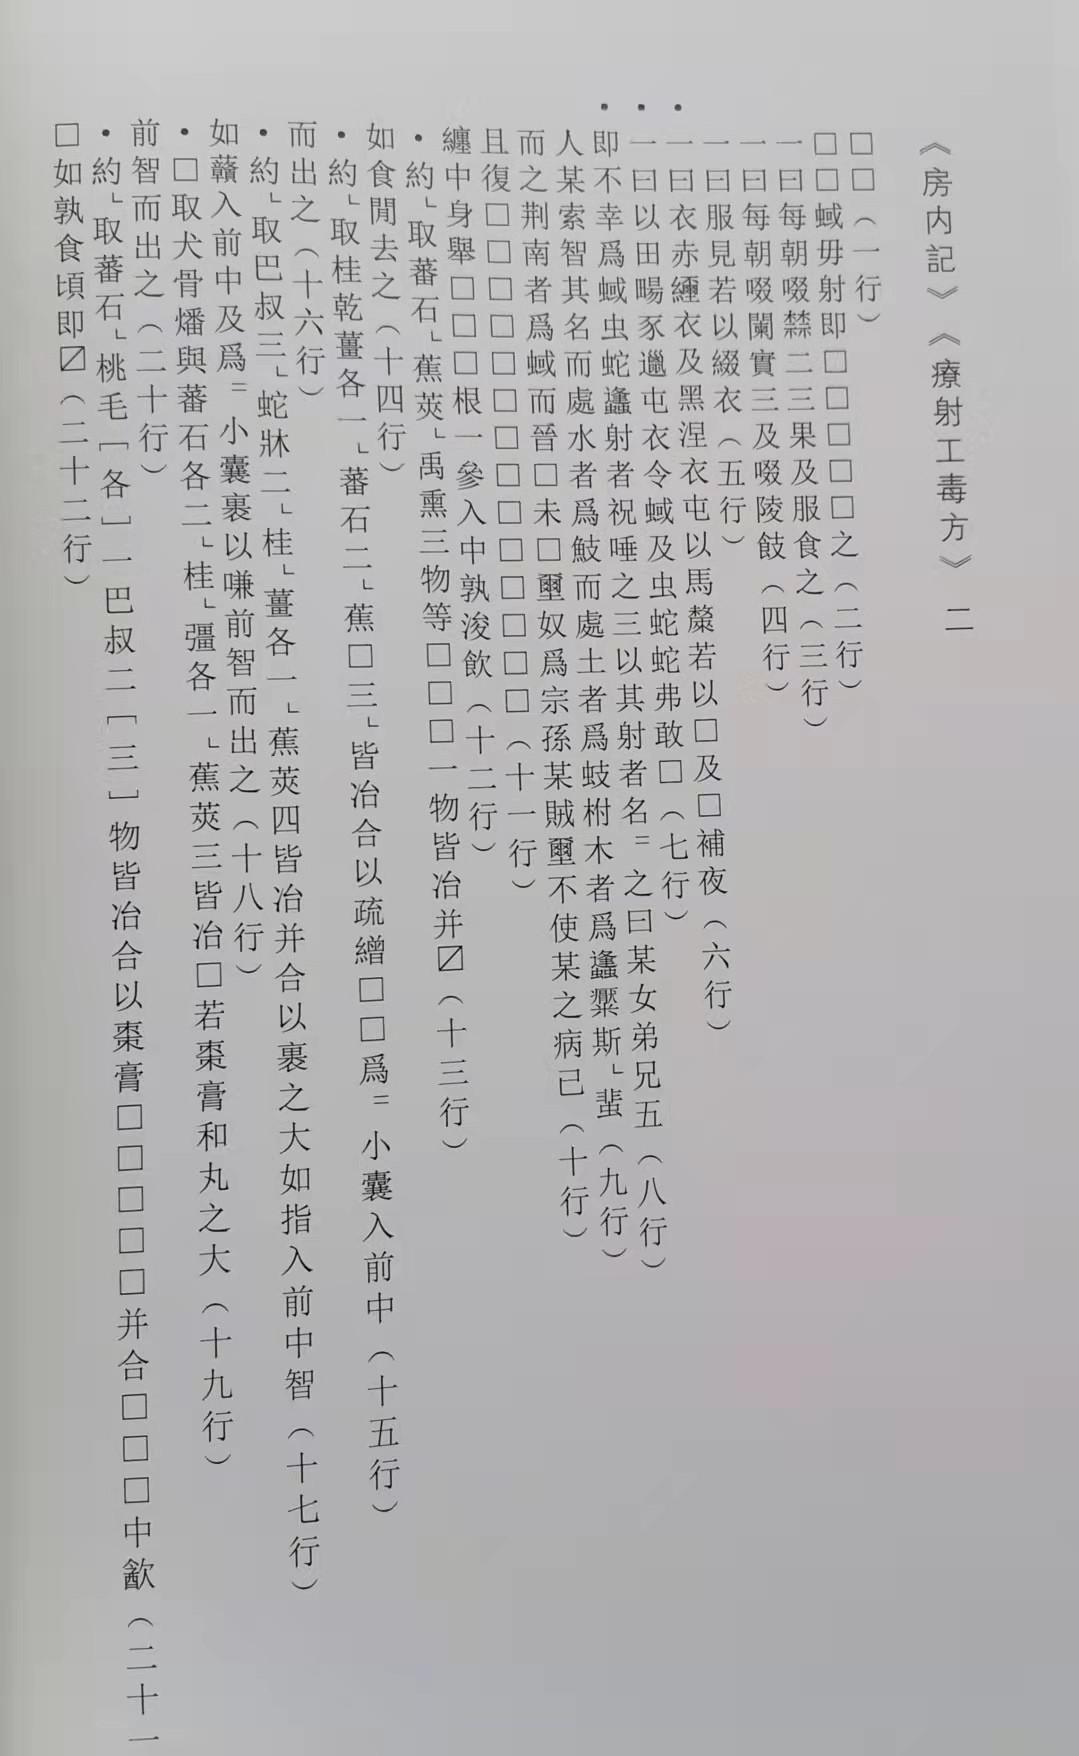 《房内記》《療射工毒方》 二
□□(一行)
□□蜮毋射即□□□□□之(二行)
一曰每朝啜禜二三果及服食之(三行)
一曰每朝啜闌實三及啜陵䶴(四行)
•一曰服見若以綴衣(五行)
•一曰衣赤纁衣及黑涅衣屯以馬氂若以□及□補夜(六行)
•一曰以田暘豕邋屯衣令蜮及虫蛇蛇弗敢□(七行)
即不幸爲蜮虫蛇蠭射者祝唾之三以其射者名=之曰某女弟兄五(八行)
人某索智其名而處水者爲鮫而處土者爲蚑柎木者爲蠭䗪斯└蜚(九行)
而之荆南者爲蜮而晉□未□壐奴爲宗孫某賊壐不使某之病已(十行)
且復□□□□□□□□□□□□□(十一行)
纏中身舉□□□根一參入中孰浚飲(十二行)
•約└取蕃石└蕉莢└禹熏三物等□□□一物皆冶并〼(十三行)
如食閒去之(十四行)
•約└取桂乾薑各一└蕃石二└蕉□三└皆冶合以疏繒□□爲=小囊入前中(十五行)
而出之(十六行)
•約└取巴叔三└蛇牀二└桂└薑各一└蕉莢四皆冶并合以裹之大如指入前中智(十七行)
如虉入前中及爲=小囊裹以嗛前智而出之(十八行)
•□取犬骨燔與蕃石各二└桂└彊各一└蕉莢三皆冶□若棗膏和丸之大(十九行)
前智而出之(二十行)
•約└取蕃石└桃毛[各]一巴叔二[三]物皆冶合以棗膏□□□□□并合□□□中歙(二十一
□如孰食頃即〼(二十二行)